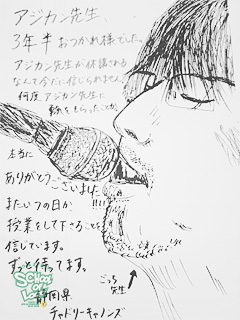 アジカン先生、
3年半おつかれ様でした。
アジカン先生が休講される
なんて今だに信じられません。
何度アジカン先生に
をもらったことか。
本当に
ありがとうございました!!!!
またいつの日か
授業をして下さることを
信じています。
ずっと待ってます。
ごっち先生
SCHOOL OF LOCK!
静岡県
チャドリーキャノンズ